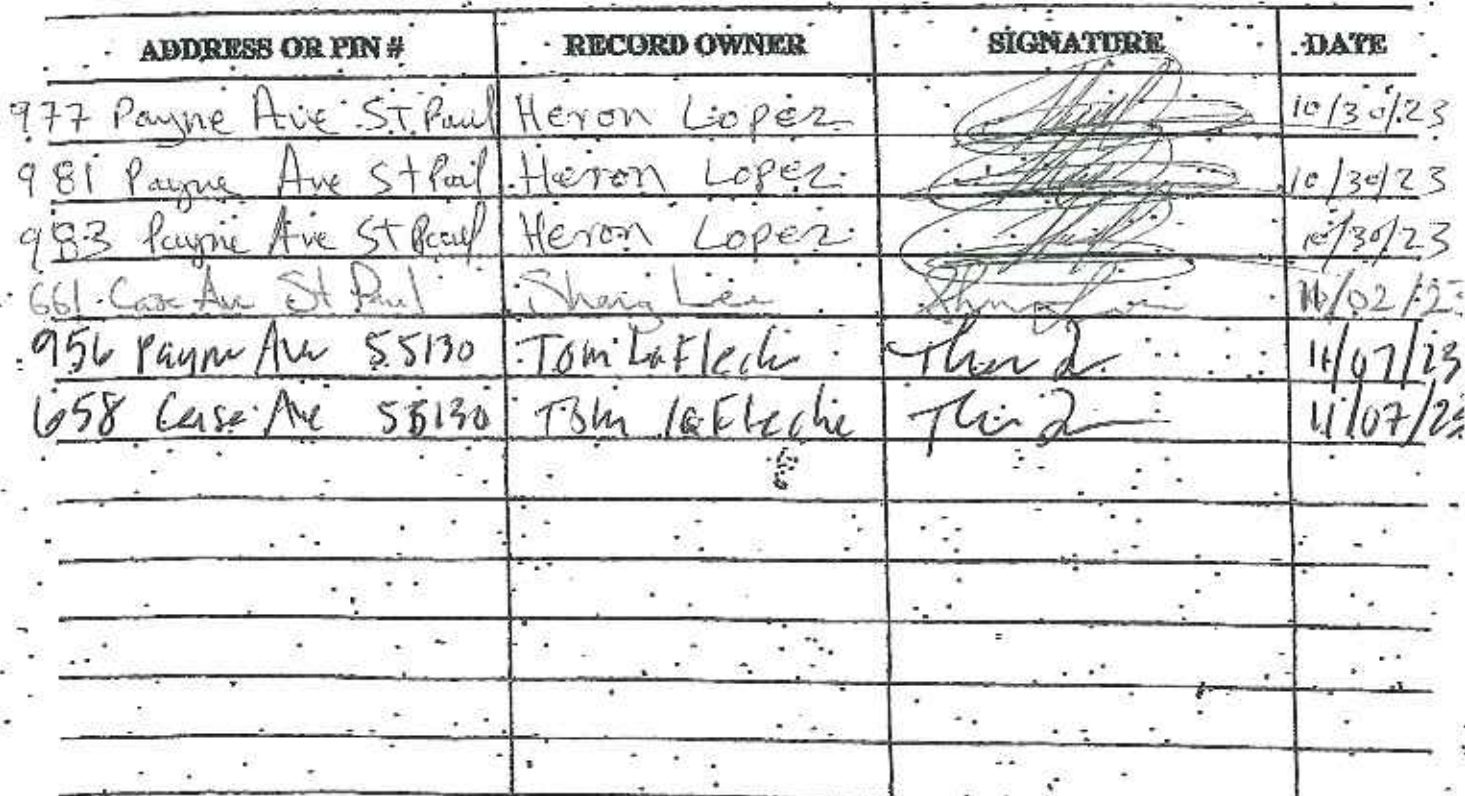 ADDRESS OR PIN # RECORD OWNER SIGNATURE DATE
977 Payne Ave St Paul Heron Lopez 10/30/23
981 Payne Ave St Paul Heron Lopez 10/30/23
983 Payne Ave St Paul Heron Lopez 10/30/23
661 Case Ave St Paul 11/02/2
956 Payne Ave 55130 Tom LaFleche 11/07/23
658 Case Ave 55130 Tom LaFleche 11/07/23